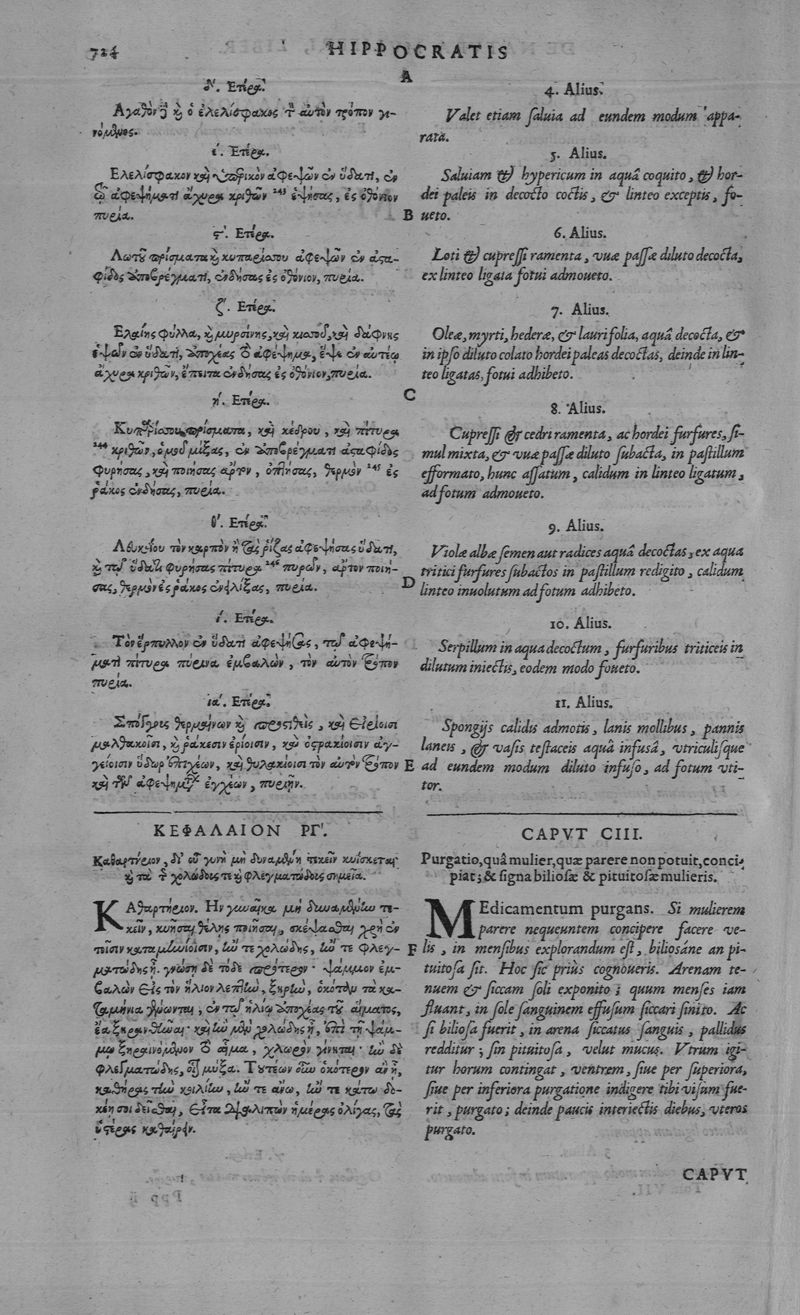 724
HIPPOCRATIS
A
δ'. Ἑτέρα.
Ἀγαθὸν δὲ καὶ ὁ ἐλελίσφακος τὸν αὐτὸν τρόπον γι-
νόμενος.
ε'. Ἑτέρα.
Ἐλελίσφακον καὶ ὑπερικὸν ἀφεψῶν ἐν ὕδατι, ἐν
τῷ ἀφεψήματι ἄχυρα κριθῶν 243 ἑψήσας, ἐς ὀθόνιον
πυρία.
B
ϛ'. Ἑτέρα.
Λωτοῦ πρίσματα καὶ κυπαρίσσου ἀφεψῶν ἐν ἀστα-
φίδος ἀποβρέγματι, ἐνδήσας ἐς ὀθόνιον, πυρία.
ζ'. Ἑτέρα.
Ἐλαίης φύλλα, καὶ μυρσίνης, καὶ κισσοῦ, καὶ δάφνης
ἑψῶν ἐν ὕδατι, ἀποχέας τὸ ἀφέψημα, ἕψε ἐν αὐτέῳ
ἄχυρα κριθῶν, ἔπειτα ἐνδήσας ἐς ὀθόνιον, πυρία.
C
η'. Ἑτέρα.
Κυπαρίσσου πρίσματα, καὶ κέδρου, καὶ πίτυρα
244 κριθῶν, ὁμοῦ μίξας, ἐν ἀποβρέγματι ἀσταφίδος
φυρήσας, καὶ ποιήσας ἄρτον, ὀπτήσας, θερμὸν 245 ἐς
ῥάκος ἐνδήσας, πυρία.
θ'. Ἑτέρα.
Λευκοΐου τὸν καρπὸν ἢ τὰς ῥίζας ἀφεψήσας ὕδατι,
καὶ τῷ ὕδατι φυρήσας πίτυρα 246 πυρῶν, ἄρτον ποιή-
σας, θερμὸν ἐς ῥάκος ἐνελίξας, πυρία.
D
ι'. Ἑτέρα.
Τὸν ἕρπυλλον ἐν ὕδατι ἀφεψήσας, τῷ ἀφεψή-
ματι πίτυρα πύρινα ἐμβαλὼν, τὸν αὐτὸν τρόπον
πυρία.
ια'. Ἑτέρα.
Σπόγγοις θερμαίνων καὶ προστιθεὶς, καὶ εἰρίοισι
μαλθακοῖσι, καὶ ῥάκεσιν ἐρίοισιν, καὶ ὀστρακίοισιν ἀγ-
γείοισιν ὕδωρ ἐπιχέων, καὶ θυλακίοισι τὸν αὐτὸν τρόπον
καὶ τῶν ἀφεψημάτων ἐγχέων, πυριῆν.
E
ΚΕΦΑΛΑΙΟΝ ΡΓ'.
Καθαρτήριον, δι' οὗ γυνὴ μὴ δυναμένη τεκεῖν κυΐσκεται
καὶ τὰ τῆς χολώδους τε καὶ φλεγματώδους σημεῖα.
ΚΑθαρτήριον. Ἢν γυναῖκα μὴ δυναμένην τε-
κεῖν, κυῆσαι θέλῃς ποιῆσαι, σκέψασθαι χρὴ ἐν
τοῖσιν καταμηνίοισιν, ἤν τε χολώδης, ἤν τε φλεγ-
ματώδης ᾖ. γνώσῃ δὲ τόδε πρότερον· ψάμμον ἐμ-
βαλὼν εἰς τὸν ἥλιον λεπτὴν, ξηρὴν, ὁκόταν τὰ κα-
ταμήνια γένωνται, ἐν τῷ ἡλίῳ ἀποχέας τοῦ αἵματος,
ἔα ξηρανθῆναι· καὶ ἢν μὲν χολώδης ᾖ, ἐπὶ τῇ ψάμ-
μῳ ξηραινόμενον τὸ αἷμα, χλωρὸν γίνεται· ἢν δὲ
φλεγματώδης, οἷον μύξα. Τουτέων οὖν ὁκότερον ἂν ᾖ,
καθήρας τὴν κοιλίην, ἤν τε ἄνω, ἤν τε κάτω δο-
κέῃ σοι δεῖσθαι, εἶτα διαλιπὼν ἡμέρας ὀλίγας, τὰς
ὑστέρας καθαίρειν.
F
4. Alius.
Valet etiam saluia ad eundem modum appa-
rata.
5. Alius.
Saluiam & hypericum in aquâ coquito, & hor-
dei paleis in decocto coctis, & linteo exceptis, fo-
ueto.
6. Alius.
Loti & cupressi ramenta, vuæ passæ diluto decocta,
ex linteo ligata fotui admoueto.
7. Alius.
Oleæ, myrti, hederæ, & lauri folia, aquâ decocta, &
in ipso diluto colato hordei paleas decoctas, deinde in lin-
teo ligatas, fotui adhibeto.
8. Alius.
Cupressi & cedri ramenta, ac hordei furfures, si-
mul mixta, & vuæ passæ diluto subacta, in pastillum
efformato, hunc assatum, calidum in linteo ligatum,
ad fotum admoueto.
9. Alius.
Violæ albæ semen aut radices aquâ decoctas, ex aqua
tritici furfures subactos in pastillum redigito, calidum
linteo inuolutum ad fotum adhibeto.
10. Alius.
Serpillum in aqua decoctum, furfuribus triticeis in
dilutum iniectis, eodem modo foueto.
11. Alius.
Spongijs calidis admotis, lanis mollibus, pannis
laneis, & vasis testaceis aquâ infusâ, vtriculisque
ad eundem modum diluto infuso, ad fotum vti-
tor.
CAPVT CIII.
Purgatio, quâ mulier, quæ parere non potuit, conci-
piat; & signa biliosæ & pituitosæ mulieris.
MEdicamentum purgans. Si mulierem
parere nequeuntem concipere facere ve-
lis, in mensibus explorandum est, biliosáne an pi-
tuitosa sit. Hoc sic priùs cognoueris. Arenam te-
nuem & siccam soli exponito; quum menses iam
fluant, in sole sanguinem effusum siccari sinito. Ac
si biliosa fuerit, in arena siccatus sanguis, pallidus
redditur; sin pituitosa, velut mucus. Vtrum igi-
tur horum contingat, ventrem, siue per superiora,
siue per inferiora purgatione indigere tibi visum fue-
rit, purgato; deinde paucis interiectis diebus, vteros
purgato.
CAPVT